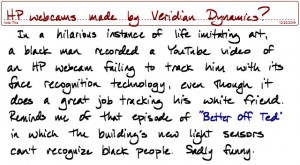 HP webcams made by Veridian Dynamics?
12/22/2009
In a hilarious instance of life imitating art,
a black man recorded a YouTube video of
an HP webcam failing to track him with its
face recognition technology, even though it
does a great job tracking his white friend.
Reminds me of that episode of "Better off Ted"
in which the building's new light sensors
can't recognize black people. Sadly funny.